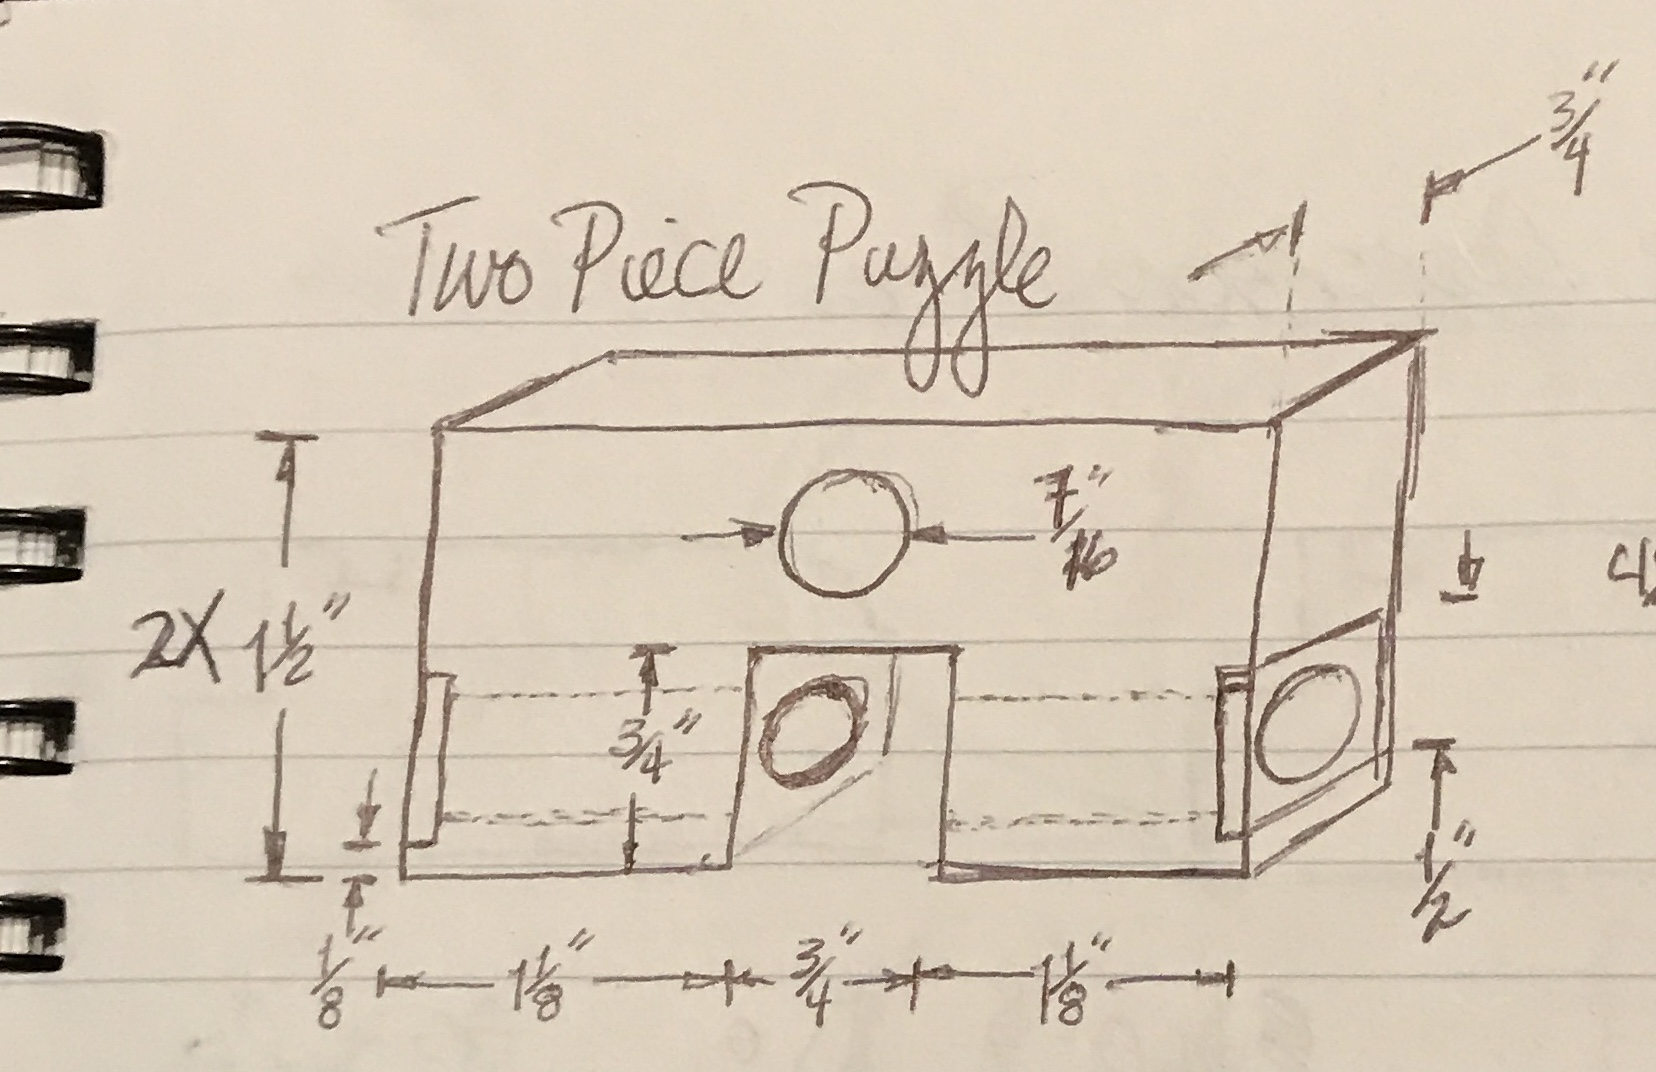 3/4"
Two Piece Puzzle
7/16"
2X 1 1/2"
3/4"
1/2"
1/8"
1 1/8" 3/4" 1 1/8"